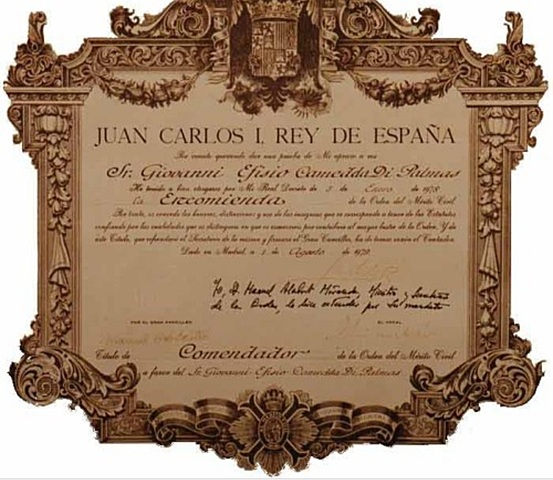 JUAN CARLOS I, REY DE ESPAÑA
Por cuanto queriendo dar una prueba de Mi aprecio a vos
Sr. Giovanni Efisio Cameada Di Palmas
He tenido a bien otorgaros por Mi Real Decreto de 5 de Enero de 1978
la Encomienda de la Orden del Mérito Civil
Por tanto, os concedo los honores, distinciones y uso de las insignias que os corresponden a tenor de los Estatutos
confiando por las cualidades que os distinguen en que os esmeraréis por contribuir al mayor lustre de la Orden. Y de
este Título, que refrendará el Secretario de la misma y firmará el Gran Canciller, ha de tomar razón el Contador.
Dado en Madrid, a 2 de Agosto de 1978
Yo, D. Manuel Alabart Miranda, Ministro y Secretario
de la Orden, lo hice extender por Su mandato
POR EL GRAN CANCILLER, EL VOCAL
Título de Comendador de la Orden del Mérito Civil
a favor del Sr. Giovanni Efisio Cameada Di Palmas